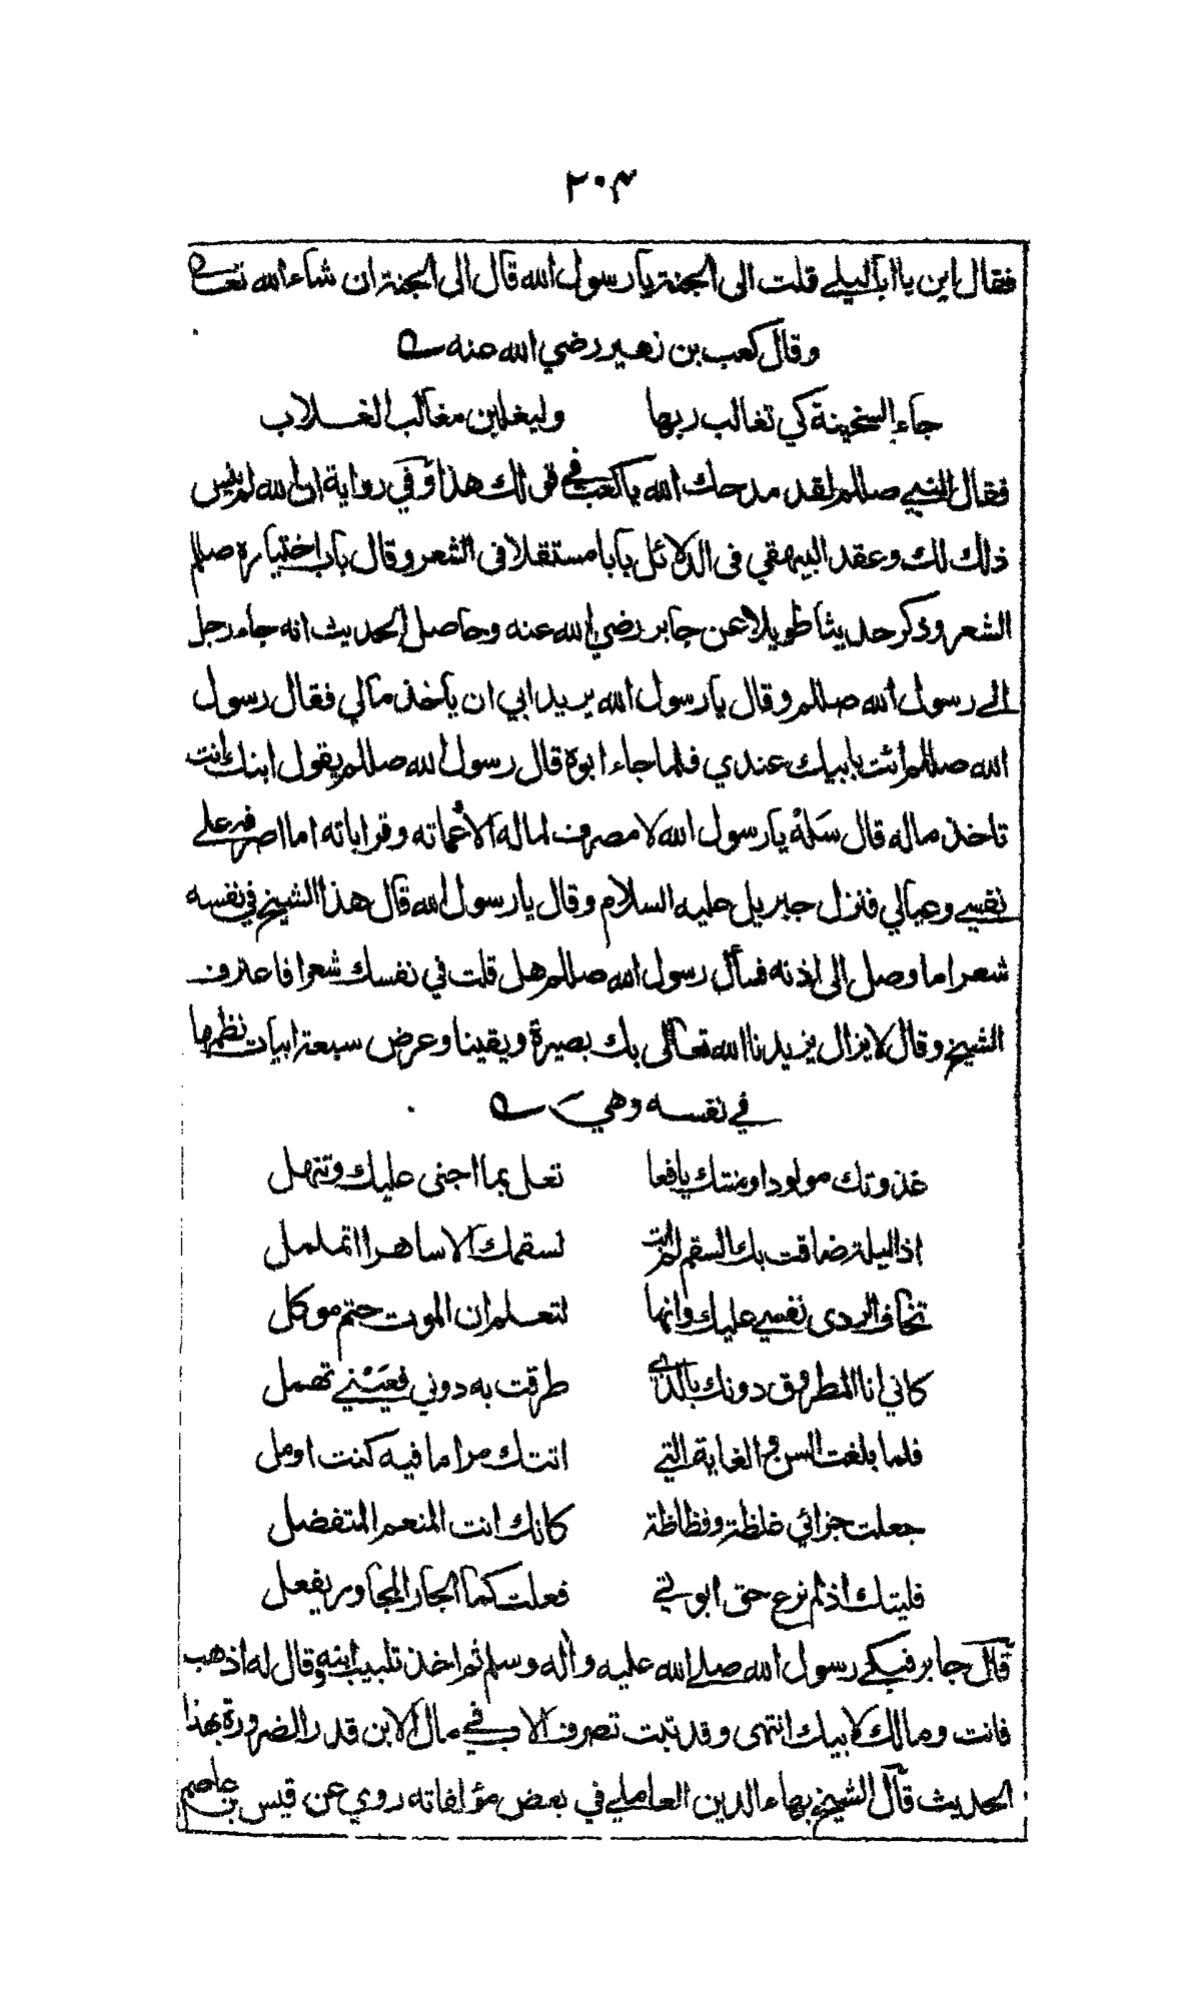 ٢٠٣
فقال اين يا ابا ليلى قلت الى الجنة يا رسول الله قال الى الجنة ان شاء الله تعالى
وقال كعب بن زهير رضي الله عنه
جاء السخينة كي تغالب ربها وليغلبن مغالب الغلاب
فقال النبي صللم لقد مدحك الله يا كعب في قولك هذا وفي رواية ان الله لم ينس
ذلك لك وعقد البيهقي في الدلائل بابا مستقلا في الشعر وقال باب اختياره صللم
الشعر وذكر حديثا طويلا عن جابر رضي الله عنه وحاصل الحديث انه جاء رجل
الى رسول الله صللم وقال يا رسول الله يريد ابي ان ياخذ مالي فقال رسول
الله صللم ائت بابيك عندي فلما جاء ابوه قال رسول الله صللم يقول ابنك انت
تاخذ ماله قال سَلهْ يا رسول الله لا مصرف لماله الا عماته وقراباته اما اصرفه على
نفسي وعيالي فنزل جبريل عليه السلام وقال يا رسول الله قال هذا الشيخ في نفسه
شعرا ما وصل الى اذنه فسأل رسول الله صللم هل قلت في نفسك شعرا فاعترف
الشيخ وقال لا يزال يزيدنا الله تعالى بك بصيرة ويقينا وعرض سبعة ابيات نظمها
في نفسه وهي
غذوتك مولودا ومنتك يافعا تعل بما اجنى عليك وتنهل
اذا ليلة ضاقت بك السقم لم ابت لسقمك الا ساهرا اتململ
تخاف الردى نفسي عليك وانها لتعلم ان الموت حتم موكل
كاني انا المطروق دونك بالذي طرقت به دوني فعَيْني تهمل
فلما بلغت السن والغاية التي اتتك مرا ما فيه كنت اومل
جعلت جزائي غلظة وفظاظة كانك انت المنعم المتفضل
فليتك اذ لم ترع حق ابوتي فعلت كما الجار المجاور يفعل
قال جابر فبكى رسول الله صلى الله عليه وآله وسلم ثم اخذ تلبيب ابنه وقال له اذهب
فانت ومالك لابيك انتهى وقد ثبت تصرف الاب في مال الابن قدر الضرورة بهذا
الحديث قال الشيخ بهاء الدين العاملي في بعض مؤلفاته روي عن قيس بن عاصم